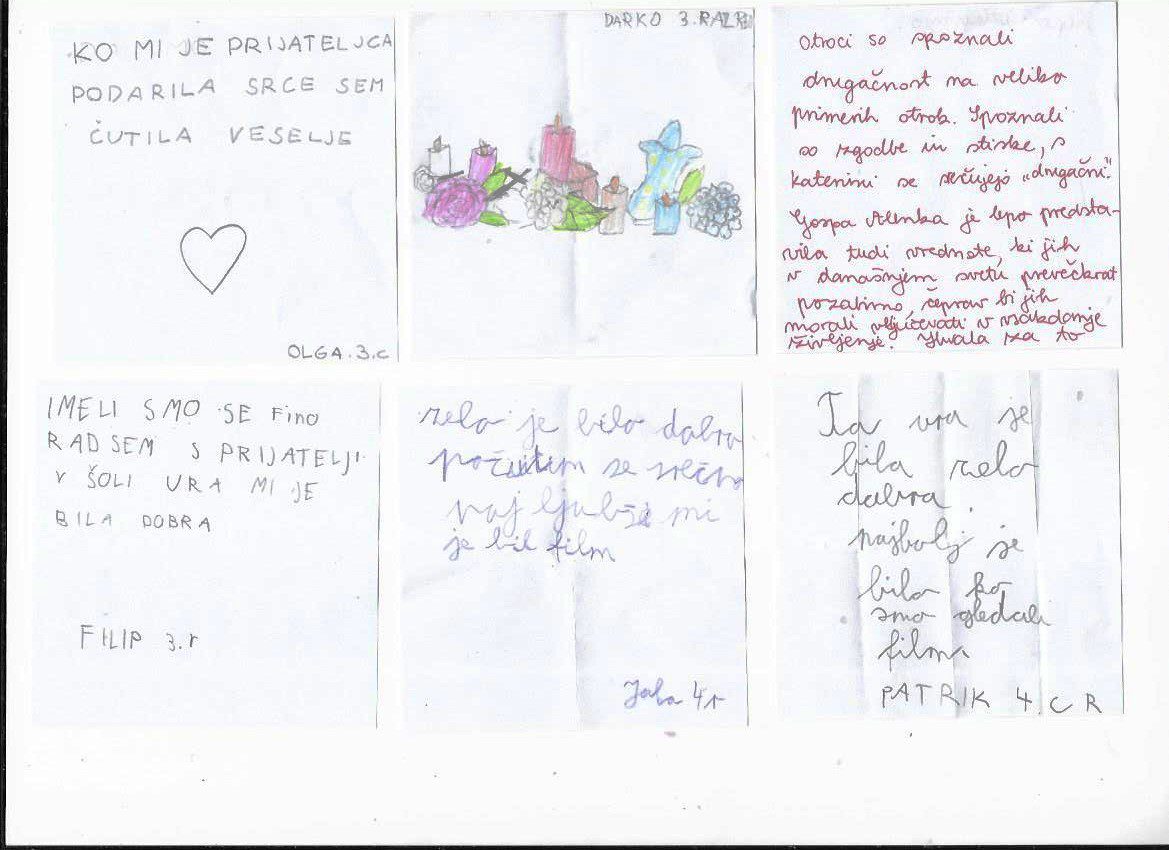 KO MI JE PRIJATELJCA
PODARILA SRCE SEM
ČUTILA VESELJE
OLGA.3.c
DARKO 3.RAZR
Otroci so spoznali
drugačnost na veliko
primerih otrok. Spoznali
so zgodbe in stiske, s
katerimi se srečujejo "drugačni".
Gospa Alenka je lepo predsta-
vila tudi vrednote, ki jih
v današnjem svetu prevečkrat
pozabimo, čeprav bi jih
morali vključevati v vsakdanje
življenje. Hvala za to
IMELI SMO SE FINO
RAD SEM S PRIJATELJI.
V ŠOLI URA MI JE
BILA DOBRA
FILIP 3.r
zelo je bilo dobro
počutim se srečno
naj ljubše mi
je bil film
4r
Ta ura je
bila zelo
dobra.
najbolj je
bilo ko
smo gledali
film
PATRIK 4.C R